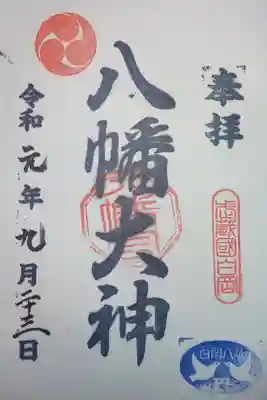 奉拝
武蔵國白岡
八幡大神
令和元年九月二十三日